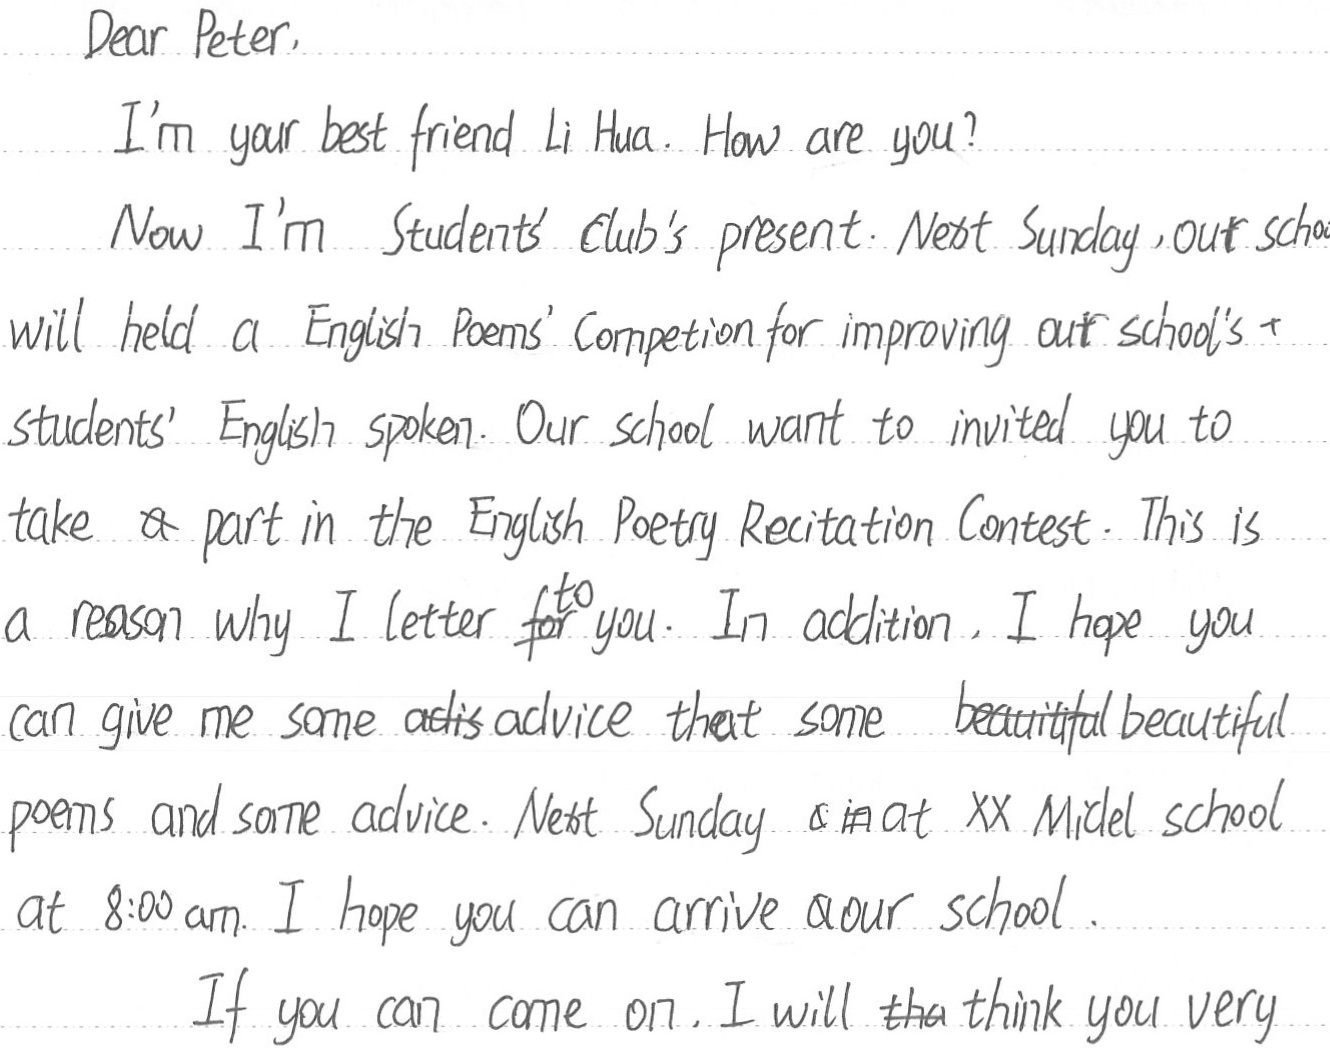 Dear Peter,
I'm your best friend Li Hua. How are you?
Now I'm Students' Club's present. Next Sunday, our schoo
will held a English Poems' Competion for improving our school's
students' English spoken. Our school want to invited you to
take a part in the English Poetry Recitation Contest. This is
a reason why I letter to you. In addition, I hope you
can give me some advice that some beautiful
poems and some advice. Next Sunday at XX Midel school
at 8:00 am. I hope you can arrive our school.
If you can come on, I will think you very